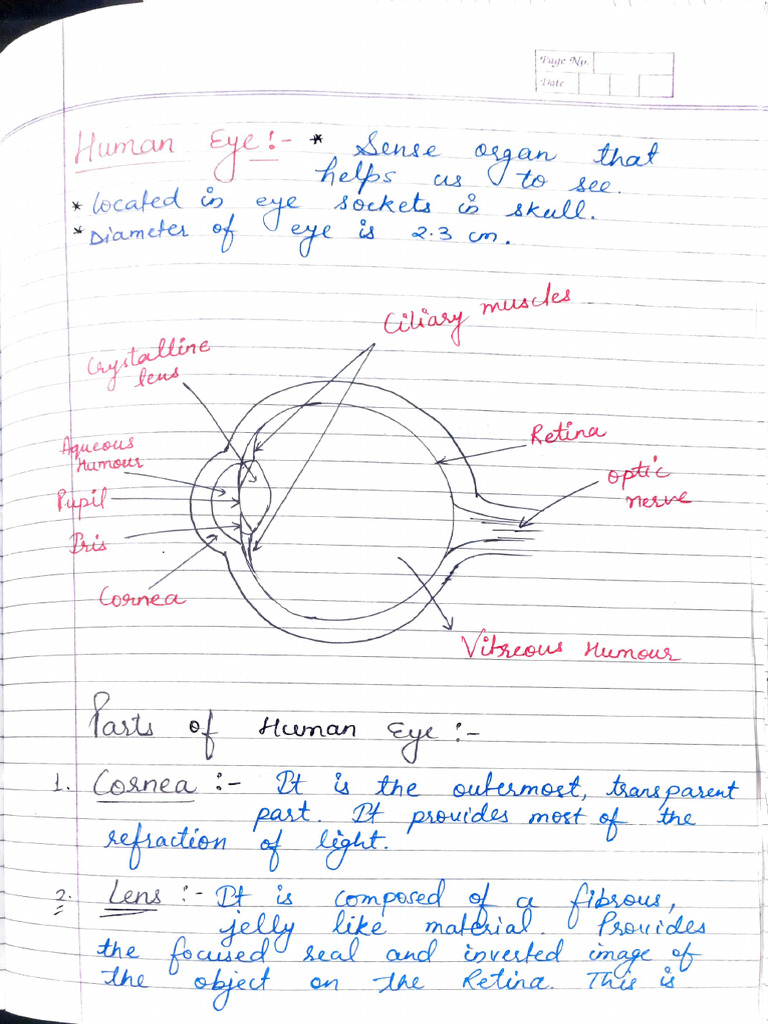 Page No.
Date
Human Eye :- * Sense organ that
helps us to see.
* Located in eye sockets in skull.
* Diameter of eye is 2.3 cm.
Ciliary muscles
Crystalline
lens
Retina
Aqueous
Humour
optic
nerve
Pupil
Iris
Cornea
Vitreous Humour
Parts of Human Eye :-
1. Cornea :- It is the outermost, transparent
part. It provides most of the
refraction of light.
2. Lens :- It is composed of a fibrous,
jelly like material. Provides
the focused real and inverted image of
the object on the Retina. This is